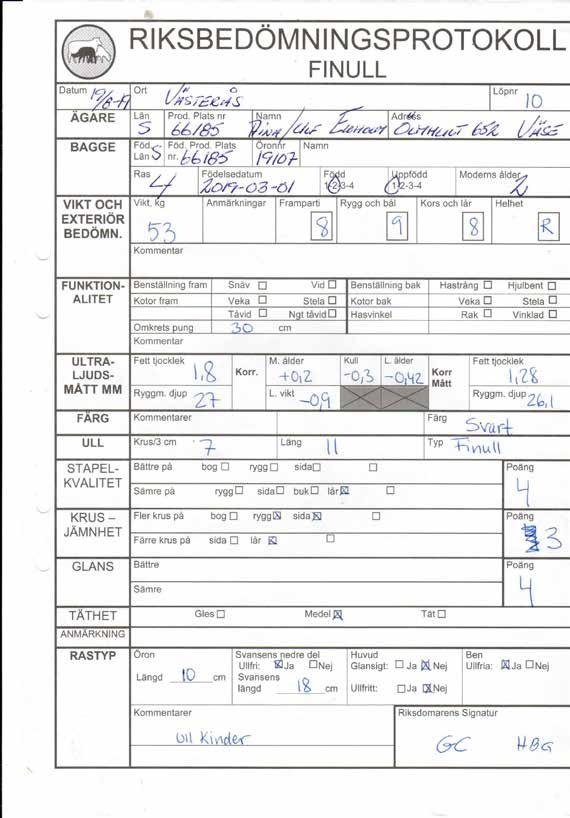 RIKSBEDÖMNINGSPROTOKOLL
FINULL
Datum 19/8-19 Ort VÄSTERÅS Löpnr 10
ÄGARE Län S Prod. Plats nr 66185 Namn /Ulf Adress 652 VÄSE
BAGGE Född Län S Föd. Prod. Plats nr. 66185 Öronnr 19107 Namn
Ras 4 Födelsedatum 2019-03-01 Född 1-2-3-4 Uppfödd 1-2-3-4 Moderns ålder 2
VIKT OCH EXTERIÖR BEDÖMN. Vikt, kg 53 Anmärkningar Framparti 8 Rygg och bål 9 Kors och lår 8 Helhet R
Kommentar
FUNKTION-ALITET Benställning fram Snäv Vid Benställning bak Hastrång Hjulbent
Kotor fram Veka Stela Kotor bak Veka Stela
Tåvid Ngt tåvid Hasvinkel Rak Vinklad
Omkrets pung 30 cm
Kommentar
ULTRA-LJUDS-MÅTT MM Fett tjocklek 1,8 Korr. M. ålder +0,2 Kull -0,3 L. ålder -0,42 Korr Mått Fett tjocklek 1,28
Ryggm. djup 27 L. vikt -0,9 Ryggm. djup 26,1
FÄRG Kommentarer Färg Svart
ULL Krus/3 cm 7 Läng 11 Typ Finull
STAPEL-KVALITET Bättre på bog rygg sida Poäng 4
Sämre på rygg sida buk lår
KRUS – JÄMNHET Fler krus på bog rygg sida Poäng 3
Färre krus på sida lår
GLANS Bättre Poäng 4
Sämre
TÄTHET Gles Medel Tät
ANMÄRKNING
RASTYP Öron Längd 10 cm Svansens nedre del Ullfri: Ja Nej Huvud Glansigt: Ja Nej Ben Ullfria: Ja Nej
Svansens längd 18 cm Ullfritt: Ja Nej
Kommentarer Ull Kinder Riksdomarens Signatur GC HBG